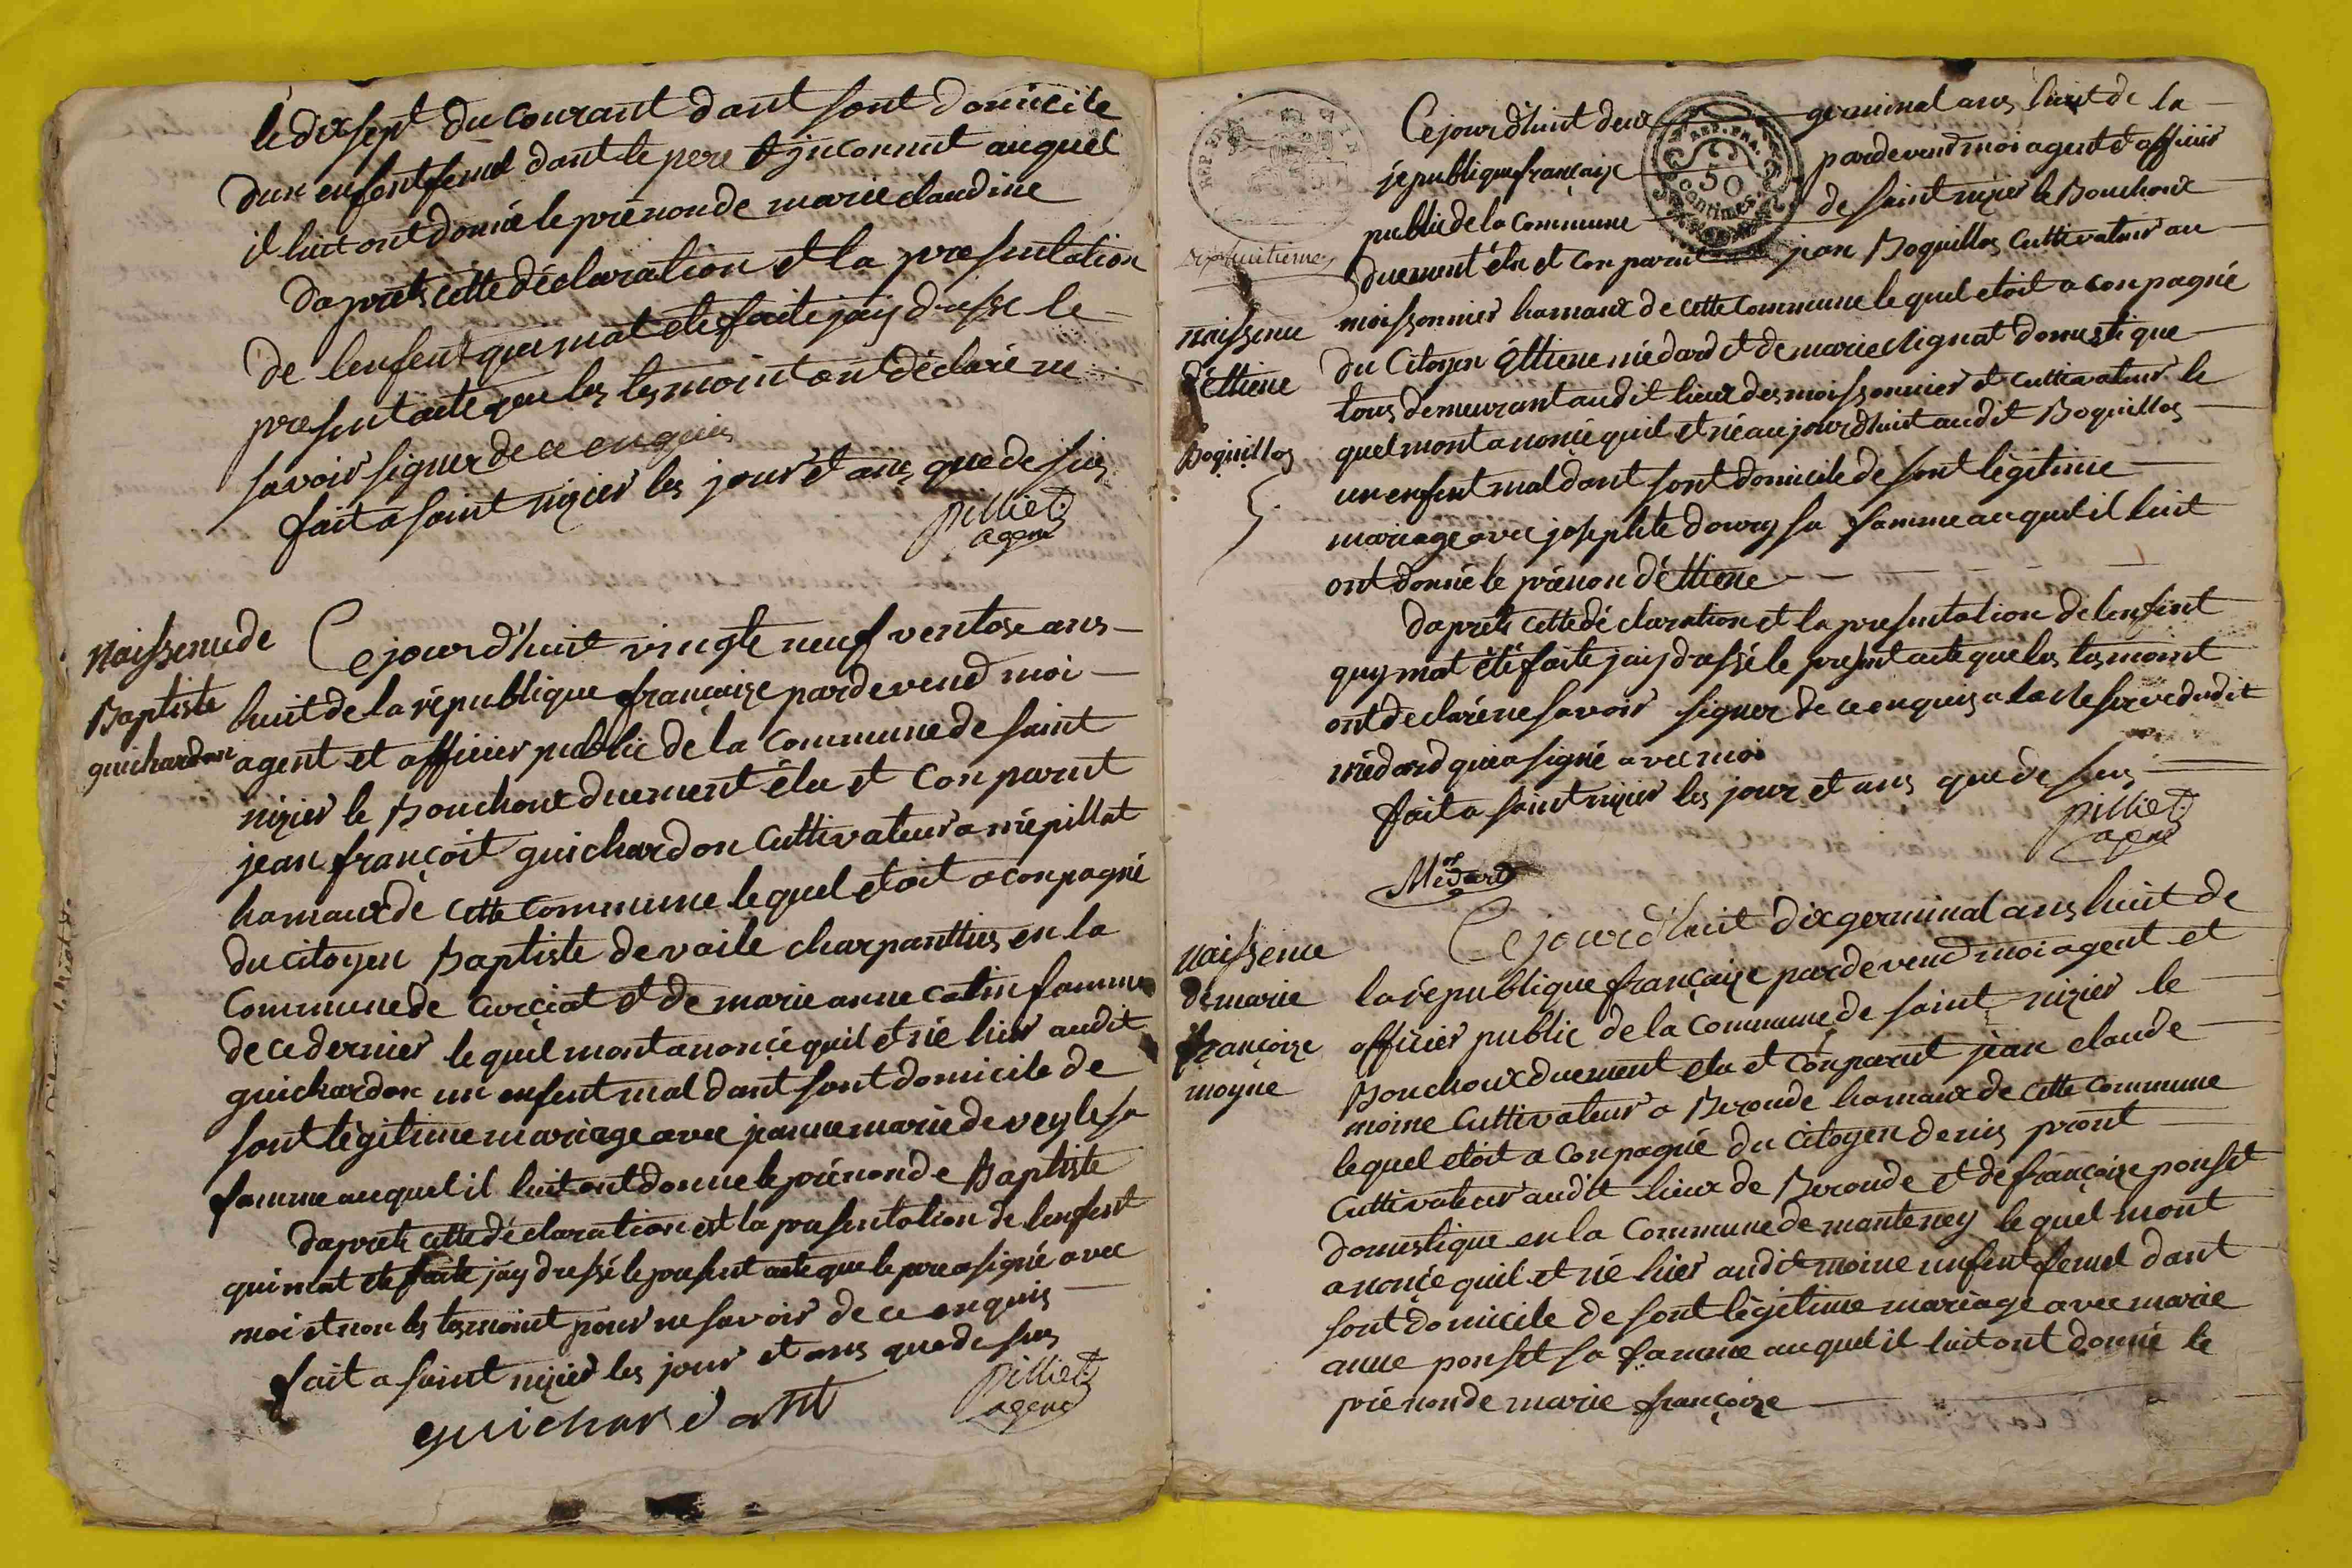 le dix sept du courant dant sont domicile
dun enfent femel dant le pere et jnconnut auquel
il luit ont donné le prénon de marie claudine
daprets cette déclaration et la presentation
de lenfent qui mat eté faite jay dressé le
present acte que les tesmoint ont déclaré ne
savoir signer de ce enquis
fait a saint nizier les jour et ans que de sus
pilliet
agent
naissence de
Baptiste
guichardon
Cejourdhuit vingte neuf ventose ans
huit de la république françaize pardevend moi
agent et officier public de la commune de saint
nizier le Bouchoux duement élu et conparut
jean françoit guichardon cultivateur a mépillat
hamaux de cette commune le quel etoit aconpagné
du citoyen Baptiste devaile charpanttier en la
commune de curçiat et de marie anne catin famme
de ce dernier le quel mont anoncé quil et né hier audit
guichardon un enfent mal dant sont domicile de
sont légitime mariage avec jeanne marie deveyle sa
famme auquel il luit ont donne le prénon de Baptiste
daprets cette déclaration et la presentation de lenfent
qui mat eté faite jay dressé le present acte que le pere a signé avec
moi et non les tesmoint pour ne savoir de ce enquis
fait a saint nizier les jour et ans que de sus
pilliet
agent
guichardont
REP. FRA.
50
centimes
dixhuitieme
naissence
d'éttiene
Boquillos
Cejourdhuit deux germinal ans huit de la
république françaize pardevend moi agent et officier
public de la commune de saint nizier le Bouchoux
duement élu et conparut jean Boquillos cultivateur au
moissonnier hamaux de cette commune le quel etoit aconpagné
du citoyen éttiene médard et de marie clignat domestique
tous demeurant audit lieux des moissonnier et cultivateur le
quel mont anoncé quil et né aujourdhuit audit Boquillos
un enfent mal dant sont domicile de sont légitime
mariage avec josephte doury sa famme auquel il luit
ont donné le prénon d'éttiene
daprets cette déclaration et la presentation de lenfent
quy mat été faite jay dressé le present acte que les tesmoint
ont declaré ne savoir signer de ce enquis a la reserve dudit
médard qui a signé avec moi
fait a saint nizier les jour et ans que de sus
pilliet
agent
Médard
naissence
de marie
françoize
moyne
Cejourdhuit dix germinal ans huit de
la république françaize pardevend moi agent et
officier public de la commune de saint nizier le
Bouchoux duement elu et conparut jean claude
moine cultivateur a Beroude hamaux de cette commune
lequel etoit aconpagné du citoyen denis pront
cultivateur audit lieux de Beroude et de françoize ponset
domestique en la commune de manteney le quel mont
anoncé quil et né hier audit moine un fent femel dant
sont domicile de sont légitime mariage avec marie
anne ponset sa famme auquel il luit ont donné le
prénon de marie françoize